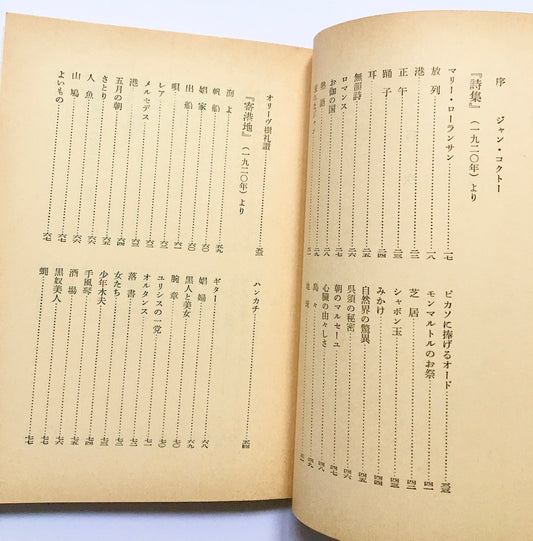 序　ジャン・コクトー
『詩集』（一九二〇年）より
マリー・ローランサン……一七
放列……一八
港……
正午……二三
踊子……二四
耳……二五
無韻詩……二六
ロマンス……二七
お伽の国……二八
……二九
ピカソに捧げるオード……三三
モンマルトルのお祭……四一
芝居……四二
シャボン玉……四三
みかけ……四四
自然界の驚異……四五
呉須の秘密……四六
朝のマルセーユ……四七
心臓の由々しさ……四八
島々……四九
オリーヴ樹礼讃……五三
『寄港地』（一九二〇年）より
海よ……五九
帆船……六〇
娼家……六〇
出船……
唄……六一
レア……
メルセデス……
港……六三
五月の朝……六四
さとり……六五
人魚……六六
山鳩……六七
よいもの……六七
ハンカチ……五四
ギター……
娼婦……六八
黒人と美女……六九
腕章……七〇
ユリシスの一党……七〇
オルタンス……七一
落書……七二
女たち……七三
少年水夫……七三
手風琴……七四
酒場……七五
黒奴美人……七六
蠅……七七